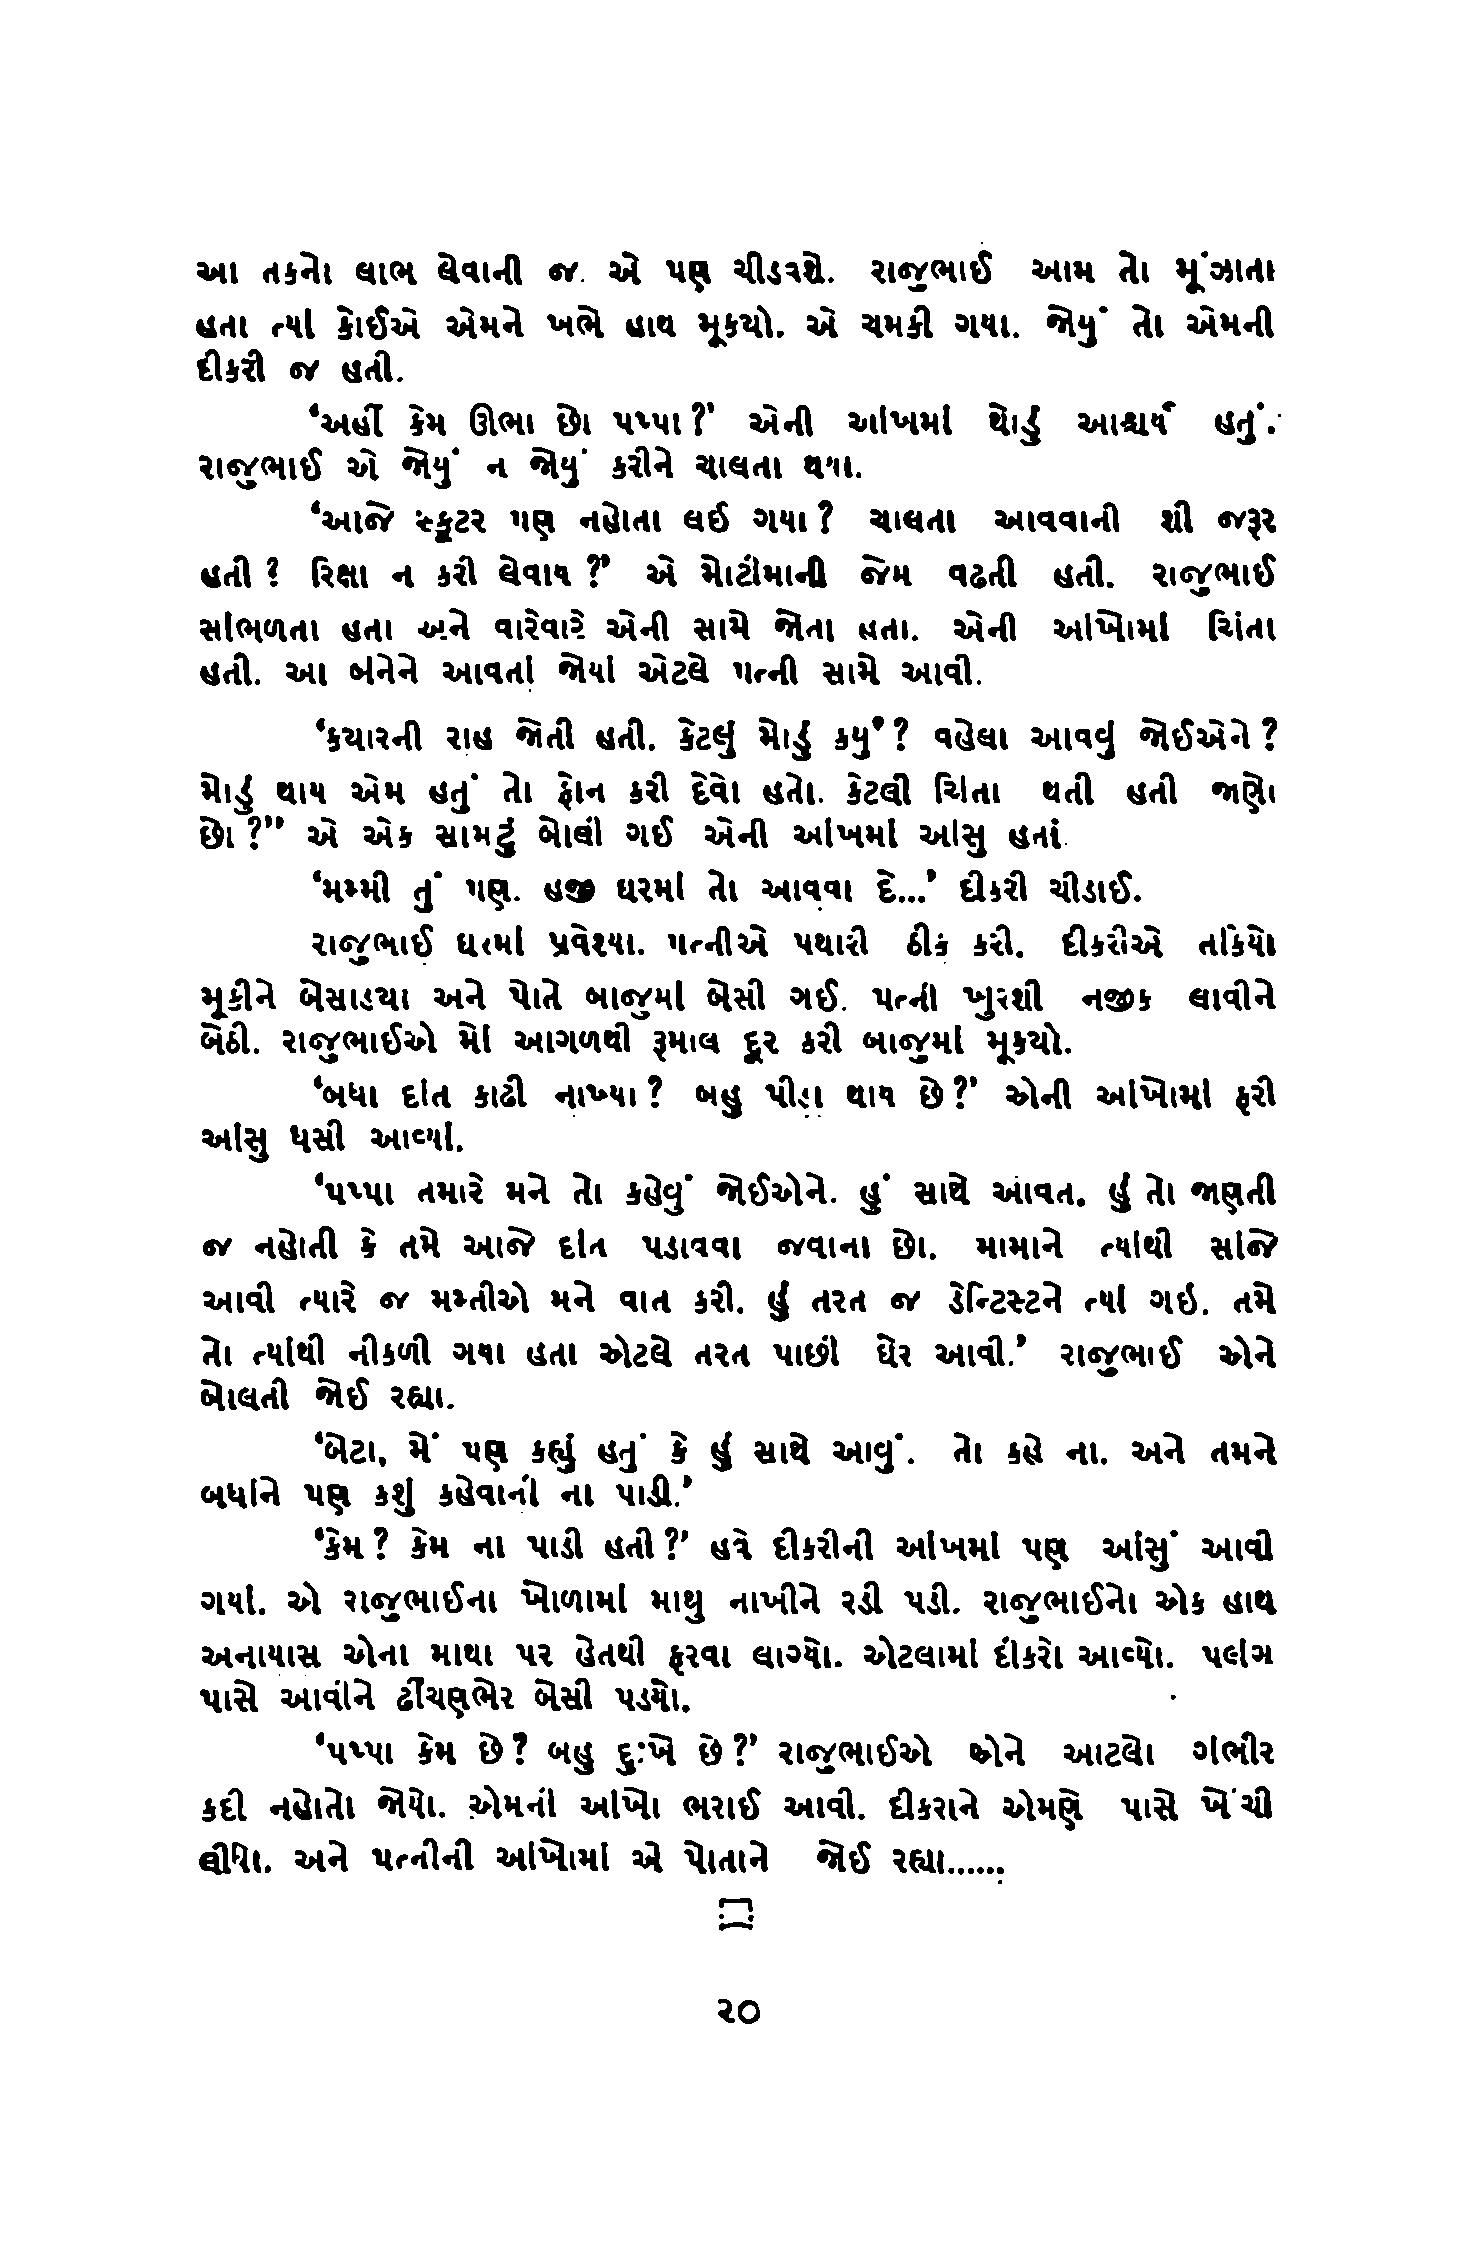 આ તકનો લાભ લેવાની જ. એ પણ ચીડવશે. રાજુભાઈ આમ તો મૂંઝાતા
હતા ત્યાં કોઈએ એમને ખભે હાથ મૂકયો. એ ચમકી ગયા. જોયું તો એમની
દીકરી જ હતી.
‘અહીં કેમ ઊભા છો પપ્પા?’ એની આંખમાં થોડું આશ્ચર્ય હતું.
રાજુભાઈ એ જોયું ન જોયું કરીને ચાલતા થયા.
‘આજે સ્કૂટર પણ નહોતા લઈ ગયા? ચાલતા આવવાની શી જરૂર
હતી? રિક્ષા ન કરી લેવાય?’ એ મોટીમાની જેમ વઢતી હતી. રાજુભાઈ
સાંભળતા હતા અને વારેવારે એની સામે જોતા હતા. એની આંખોમાં ચિંતા
હતી. આ બંનેને આવતાં જોયાં એટલે પત્ની સામે આવી.
‘કયારની રાહ જોતી હતી. કેટલું મોડું કયુ’? વહેલા આવવું જોઈએને?
મોડું થાય એમ હતું તો ફોન કરી દેવો હતો. કેટલી ચિંતા થતી હતી જાણો
છો?” એ એક સામટું બોલી ગઈ એની આંખમાં આંસુ હતાં.
‘મમ્મી તું પણ. હજી ઘરમાં તો આવવા દે...’ દીકરી ચીડાઈ.
રાજુભાઈ ઘરમાં પ્રવેશ્યા. પત્નીએ પથારી ઠીક કરી. દીકરીએ તકિયો
મૂકીને બેસાડયા અને પોતે બાજુમાં બેસી ગઈ. પત્ની ખુરશી નજીક લાવીને
બેઠી. રાજુભાઈએ મોં આગળથી રૂમાલ દૂર કરી બાજુમાં મૂકયો.
‘બધા દાંત કાઢી નાખ્યા? બહુ પીડા થાય છે?’ એની આંખોમાં ફરી
આંસુ ધસી આવ્યાં.
‘પપ્પા તમારે મને તો કહેવું જોઈએને. હું સાથે આવત. હું તો જાણતી
જ નહોતી કે તમે આજે દાંત પડાવવા જવાના છો. મામાને ત્યાંથી સાંજે
આવી ત્યારે જ મમ્મીએ મને વાત કરી. હું તરત જ ડેન્ટિસ્ટને ત્યાં ગઇ. તમે
તો ત્યાંથી નીકળી ગયા હતા એટલે તરત પાછી ઘેર આવી.’ રાજુભાઈ એને
બોલતી જોઈ રહ્યા.
‘બેટા, મેં પણ કહ્યું હતું કે હું સાથે આવું. તો કહે ના. અને તમને
બધાંને પણ કશું કહેવાની ના પાડી.’
‘કેમ? કેમ ના પાડી હતી?’ હવે દીકરીની આંખમાં પણ આંસું આવી
ગયાં. એ રાજુભાઈના ખોળામાં માથુ નાખીને રડી પડી. રાજુભાઈનો એક હાથ
અનાયાસ એના માથા પર હેતથી ફરવા લાગ્યો. એટલામાં દીકરો આવ્યો. પલંગ
પાસે આવીને ઢીંચણભેર બેસી પડયો.
‘પપ્પા કેમ છે? બહુ દુઃખે છે?’ રાજુભાઈએ એને આટલો ગંભીર
કદી નહોતો જોયો. એમની આંખો ભરાઈ આવી. દીકરાને એમણે પાસે ખેંચી
લીધો. અને પત્નીની આંખોમાં એ પોતાને જોઈ રહ્યા......
૨૦